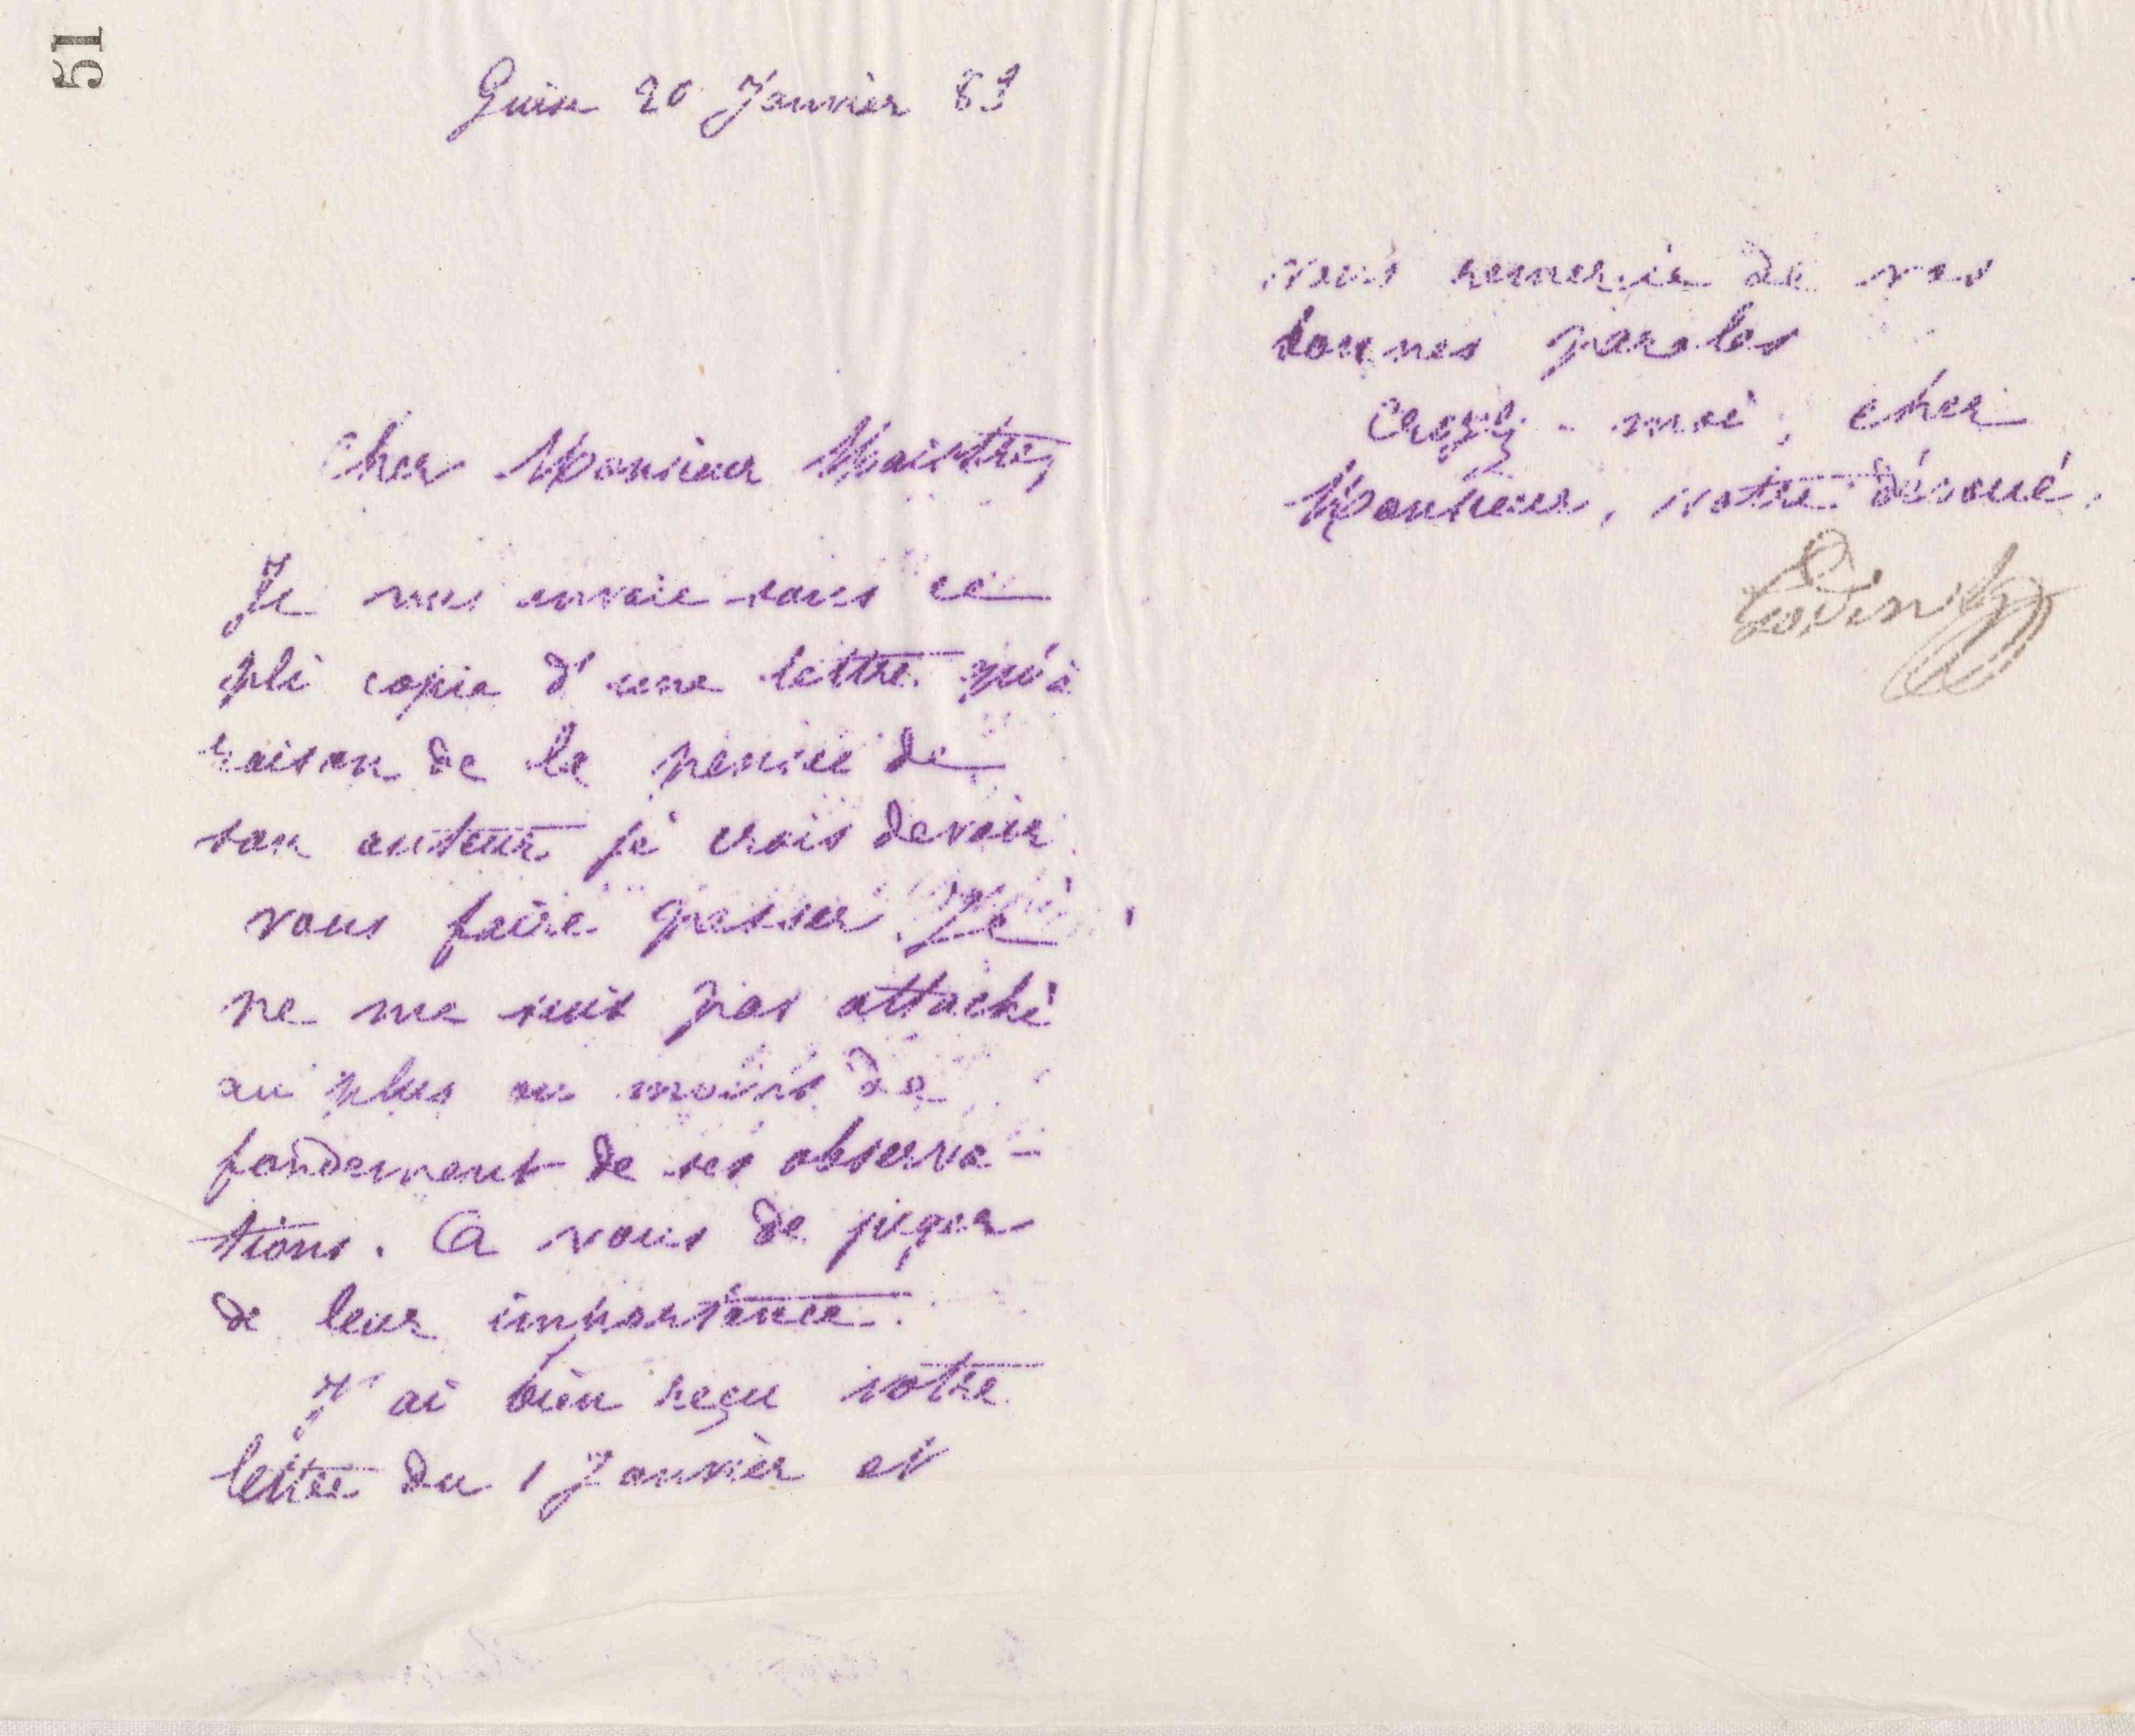 51
Guise 20 Janvier 83
Cher Monsieur Maistre,
Je vous envoie sous ce
pli copie d'une lettre qu'à
raison de la pensée de
son auteur je crois devoir
vous faire passer. Je
ne me suis pas attaché
au plus ou moins de
fondement de ses observa-
tions. A vous de juger
de leur importance.
J'ai bien reçu votre
lettre du 1 Janvier et
vous remercie de vos
bonnes paroles
Croyez-moi, cher
Monsieur, votre dévoué.
Godin